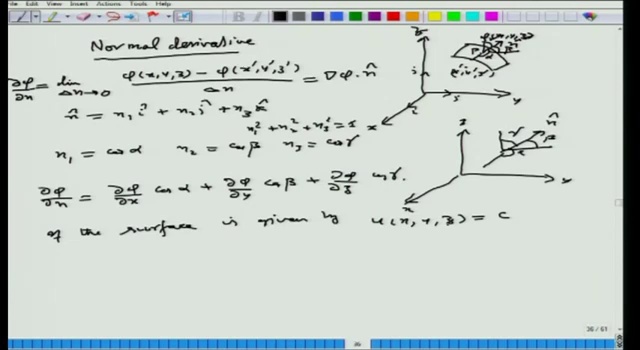 File Edit View Insert Actions Tools Help
Normal derivative
∂φ/∂n = lim Δn→0 φ(x,y,z) − φ(x',y',z') / Δn = ∇φ·n̂
n̂ = n₁î + n₂ĵ + n₃k̂
n₁² + n₂² + n₃² = 1
n₁ = cosα n₂ = cosβ n₃ = cosγ
∂φ/∂n = ∂φ/∂x cosα + ∂φ/∂y cosβ + ∂φ/∂z cosγ.
If the surface is given by u(x,y,z) = c
z
φ(x,y,z)
(x',y',z')
y
x
z
n̂
γ
β
α
y
x
36
36 / 61